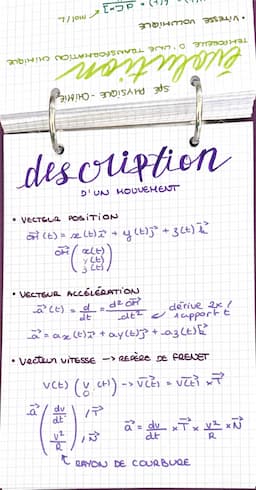 mol/L
• VITESSE VOLUMIQUE
TEMPORELLE D'UNE TRANSFORMATION CHIMIQUE
évolution
SPÉ PHYSIQUE - CHIMIE
description
D'UN MOUVEMENT
• VECTEUR POSITION
OM⃗ (t) = x(t)i⃗ + y(t)j⃗ + z(t)k⃗
OM⃗ ( x(t)
y(t)
z(t) )
• VECTEUR ACCÉLÉRATION
a⃗(t) = d/dt = d² OM⃗ / dt² ← dérive 2x /
rapport t
a⃗ = ax(t)i⃗ + ay(t)j⃗ + az(t)k⃗
• Vecteur VITESSE → REPÈRE DE FRENET
V(t) ( v (t) 0 ) → V⃗(t) = V⃗(t) × T⃗
a⃗ ( dv/dt / T⃗
v²/R / N⃗ ) a⃗ = dv/dt × T⃗ × v²/R × N⃗
RAYON DE COURBURE